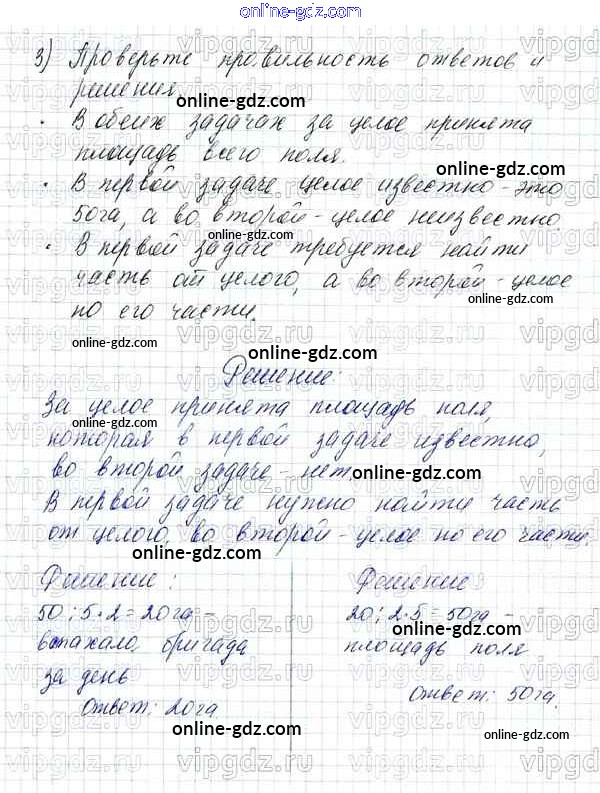 online-gdz.com
3) Проверьте правильность ответов и
решения.
online-gdz.com
• В обеих задачах за целое принята
площадь всего поля.
online-gdz.com
• В первой задаче целое известно - это
50га, а во второй - целое неизвестно.
online-gdz.com
• В первой задаче требуется найти
часть от целого, а во второй - целое
online-gdz.com
по его части.
online-gdz.com
online-gdz.com
Решение:
За целое принята площадь поля,
которая в первой задаче известно,
во второй задаче - нет
online-gdz.com
В первой задаче нужно найти часть
от целого, во второй - целое по его части.
online-gdz.com
Решение:
50 : 5 · 2 = 20 га -
вспахало, бригада
за день
Ответ: 20га.
online-gdz.com
Решение:
20 : 2 · 5 = 50га -
online-gdz.com
площадь поля
online-gdz.com
Ответ: 50га.
online-gdz.com
online-gdz.com
vipgdz.ru